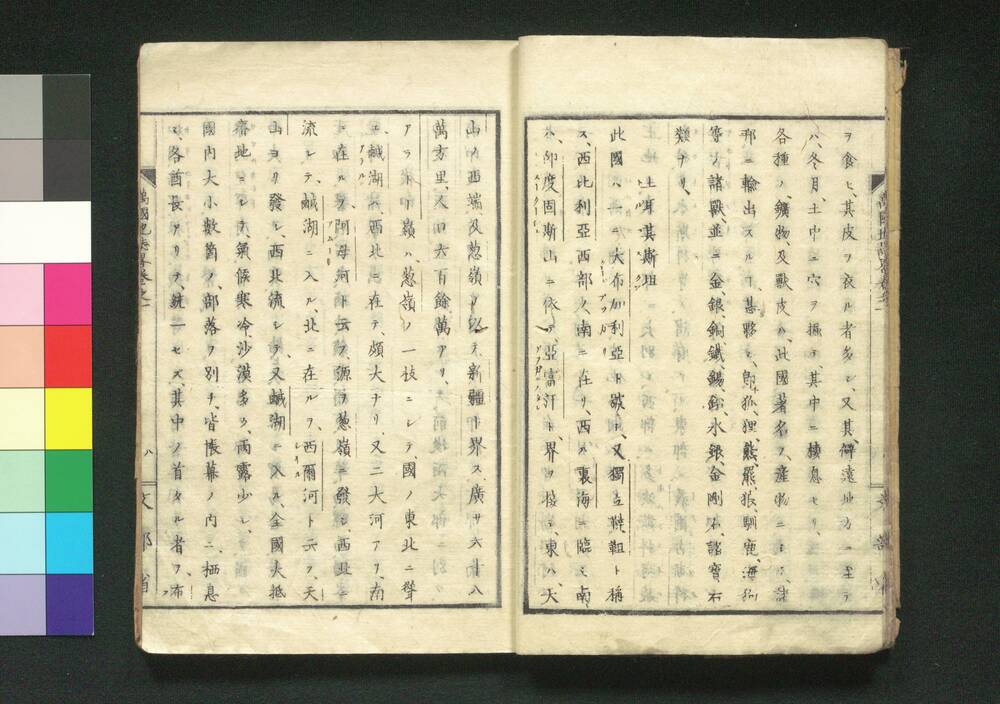 ヲ食ヒ、其皮ヲ衣ル者多シ、又其僻遠地方ニ至テ
ハ、冬月、土中ニ穴ヲ掘テ、其中ニ棲息セリ、
各種ノ鑛物、及獣皮ハ、此國著名ノ産物ニシテ、諸
邦ニ輸出スルヿ、甚夥シ、即狐、狸、熊、羆、狼、馴鹿、海狗
等ノ諸獣、並ニ金、銀、銅、鐵、錫、鉛、水銀、金剛石、諸寳石
類ナリ、
土耳其斯坦
此國ハ、一ニ大布加利亞ト號ケ、又獨立韃靼ト稱
ス、西比利亞西部ノ南ニ在リ、西ハ裏海ニ臨ミ、南
ハ、印度固斯山ニ依テ、亞富汗ト界ヲ接シ、東ハ、大
山ノ西端及葱嶺ヲ以テ、新疆ト界ス、廣サ六十八
萬方里、人口六百餘萬アリ、
アラター嶺ハ、葱嶺ノ一枝ニシテ、國ノ東北ニ聳
エ、鹹湖ハ、西北ニ在テ、頗大ナリ、又二大河アリ、南
ニ在ルヲ、阿母河ト云フ、源ヲ葱嶺ニ發シ、西北ニ
流レテ、鹹湖ニ入ル、北ニ在ルヲ、西爾河ト云フ、天
山ヨリ發シ、西北流シテ、又鹹湖ニ入ル、全國大抵
瘠地ニシテ、氣候寒冷、沙漠多ク、雨露少シ、
國内大小數箇ノ部落ヲ別チ、皆帳幕ノ内ニ栖息
ス、各酋長アリテ、統一セズ、其中ノ首タル者ヲ、布
萬國地誌畧巻之一
八
文部省